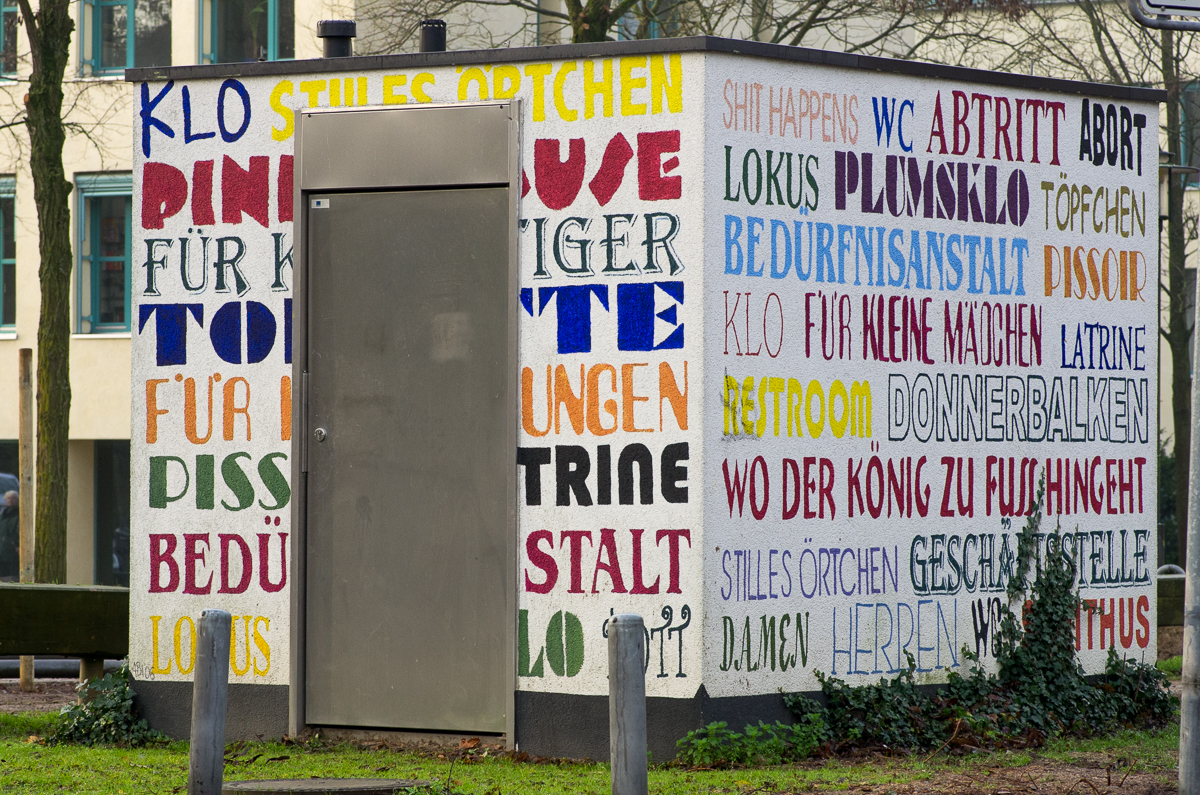 KLO STILLES ÖRTCHEN
PIN USE
FÜR K TIGER
TOI TTE
FÜR UNGEN
PISS TRINE
BEDÜ STALT
LOKUS LO "OTT"
SHIT HAPPENS WC ABTRITT ABORT
LOKUS PLUMSKLO TÖPFCHEN
BEDÜRFNISANSTALT PISSOIR
KLO FÜR KLEINE MÄDCHEN LATRINE
RESTROOM DONNERBALKEN
WO DER KÖNIG ZU FUSS HINGEHT
STILLES ÖRTCHEN GESCHÄFTSSTELLE
DAMEN HERREN